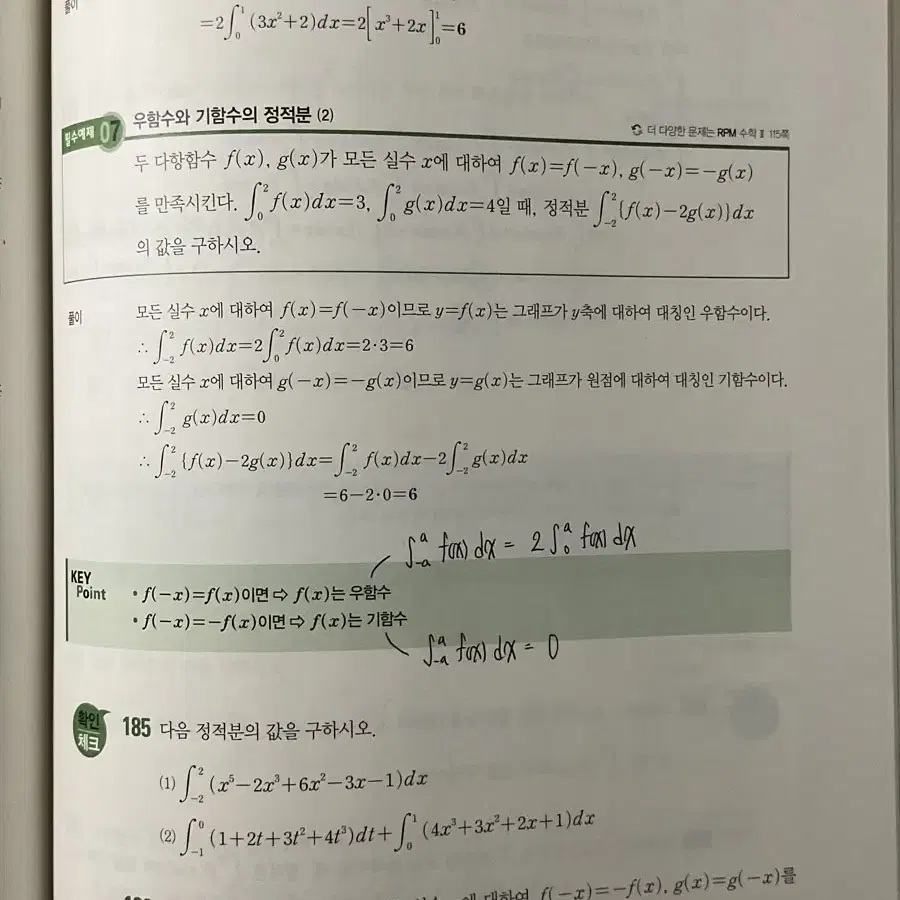 풀이
=2∫₀¹(3x²+2)dx=2[x³+2x]₀¹=6
필수예제 07 우함수와 기함수의 정적분 (2)
더 다양한 문제는 RPM 수학 Ⅱ 115쪽
두 다항함수 f(x), g(x)가 모든 실수 x에 대하여 f(x)=f(-x), g(-x)=-g(x)
를 만족시킨다. ∫₀²f(x)dx=3, ∫₀²g(x)dx=4일 때, 정적분 ∫₋₂²{f(x)-2g(x)}dx
의 값을 구하시오.
풀이 모든 실수 x에 대하여 f(x)=f(-x)이므로 y=f(x)는 그래프가 y축에 대하여 대칭인 우함수이다.
∴ ∫₋₂²f(x)dx=2∫₀²f(x)dx=2·3=6
모든 실수 x에 대하여 g(-x)=-g(x)이므로 y=g(x)는 그래프가 원점에 대하여 대칭인 기함수이다.
∴ ∫₋₂²g(x)dx=0
∴ ∫₋₂²{f(x)-2g(x)}dx=∫₋₂²f(x)dx-2∫₋₂²g(x)dx
=6-2·0=6
∫₋ₐᵃ f(x)dx = 2∫₀ᵃ f(x)dx
KEY Point
• f(-x)=f(x)이면 ⇨ f(x)는 우함수
• f(-x)=-f(x)이면 ⇨ f(x)는 기함수
∫₋ₐᵃ f(x)dx = 0
확인 체크 185 다음 정적분의 값을 구하시오.
(1) ∫₋₂²(x⁵-2x³+6x²-3x-1)dx
(2) ∫₋₁⁰(1+2t+3t²+4t³)dt+∫₀¹(4x³+3x²+2x+1)dx
에 대하여 f(-x)=-f(x), g(x)=g(-x)를